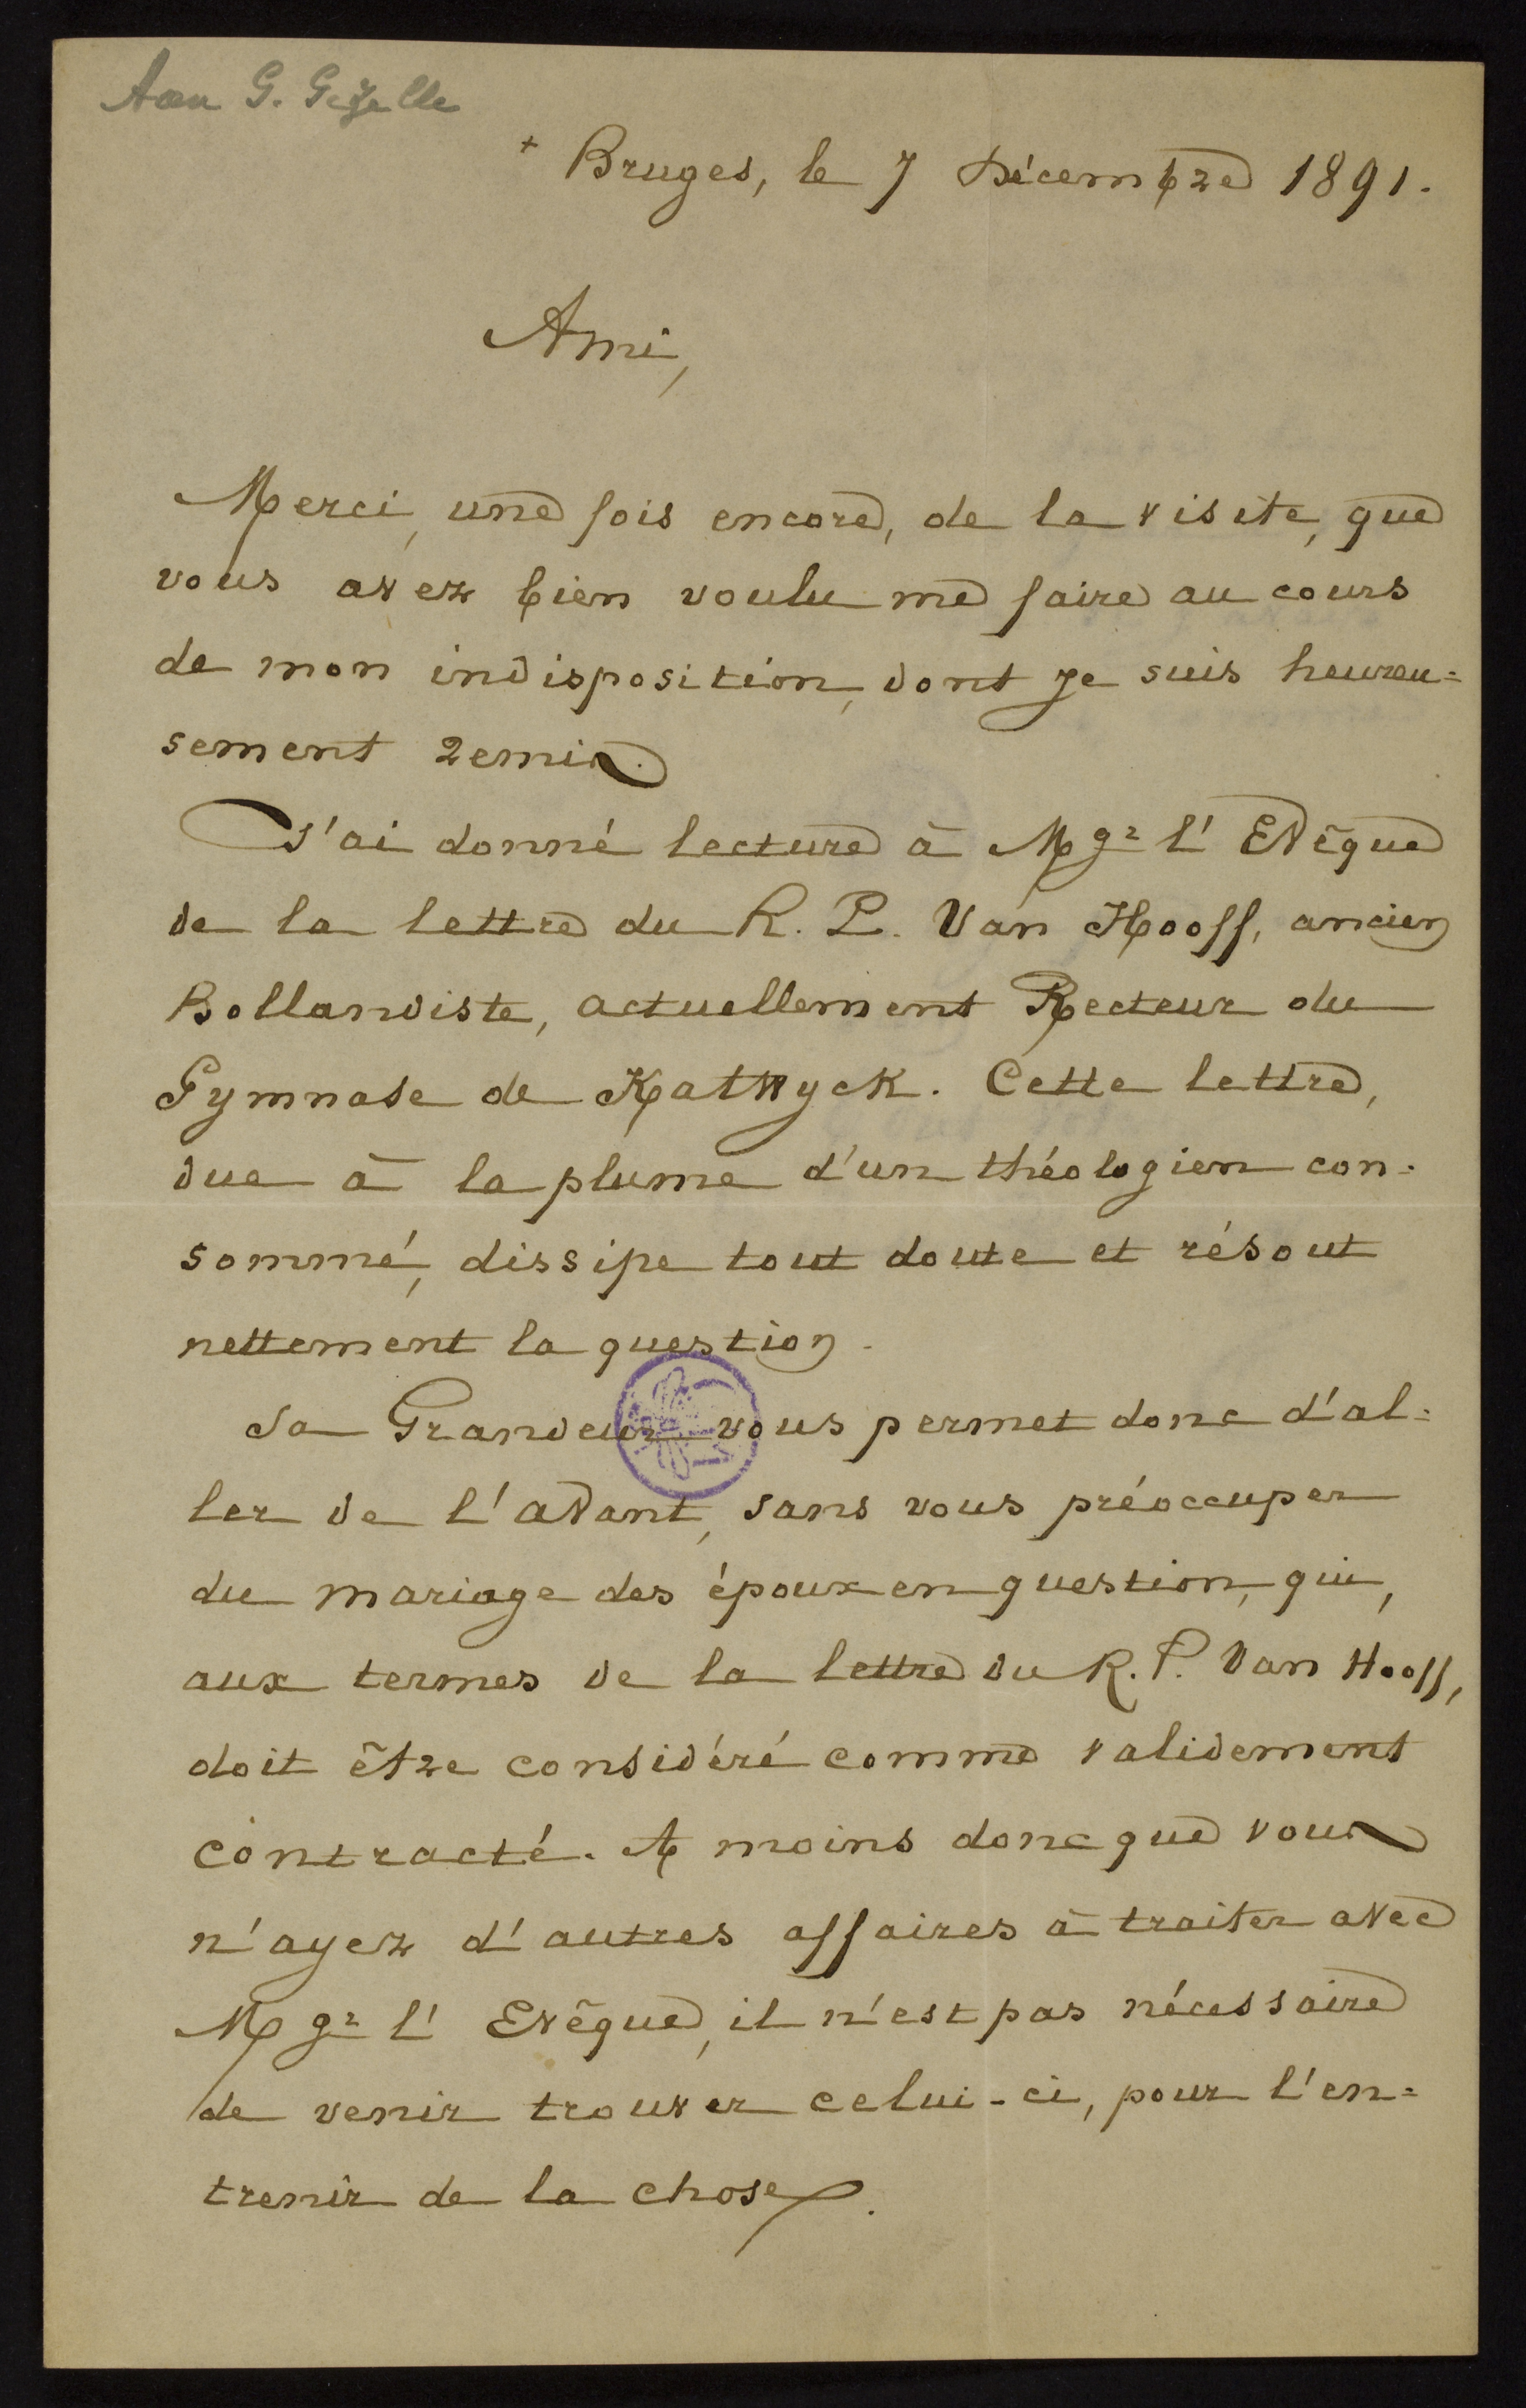 Aan G. Gezelle
+ Bruges, le 7 Décembre 1891.
Ami,
Merci, une fois encore, de la visite, que
vous avez bien voulu me faire au cours
de mon indisposition, dont je suis heureu=
sement remis.
J'ai donné lecture à Mgr l'Evêque
de la lettre du R. P. Van Hooff, ancien
Bollandiste, actuellement Recteur du
Gymnase de Katwyck. Cette lettre,
due à la plume d'un théologien con-
sommé, dissipe tout doute et résout
nettement la question.
Sa Grandeur vous permet donc d'al=
ler de l'avant, sans vous préoccuper
du mariage des époux en question, qui,
aux termes de la lettre du R. P. Van Hooff,
doit être considéré comme validement
contracté. A moins donc que vous
n'ayez d'autres affaires à traiter avec
Mgr l'Evêque, il n'est pas nécessaire
de venir trouver celui-ci, pour l'en=
trenir de la chose.